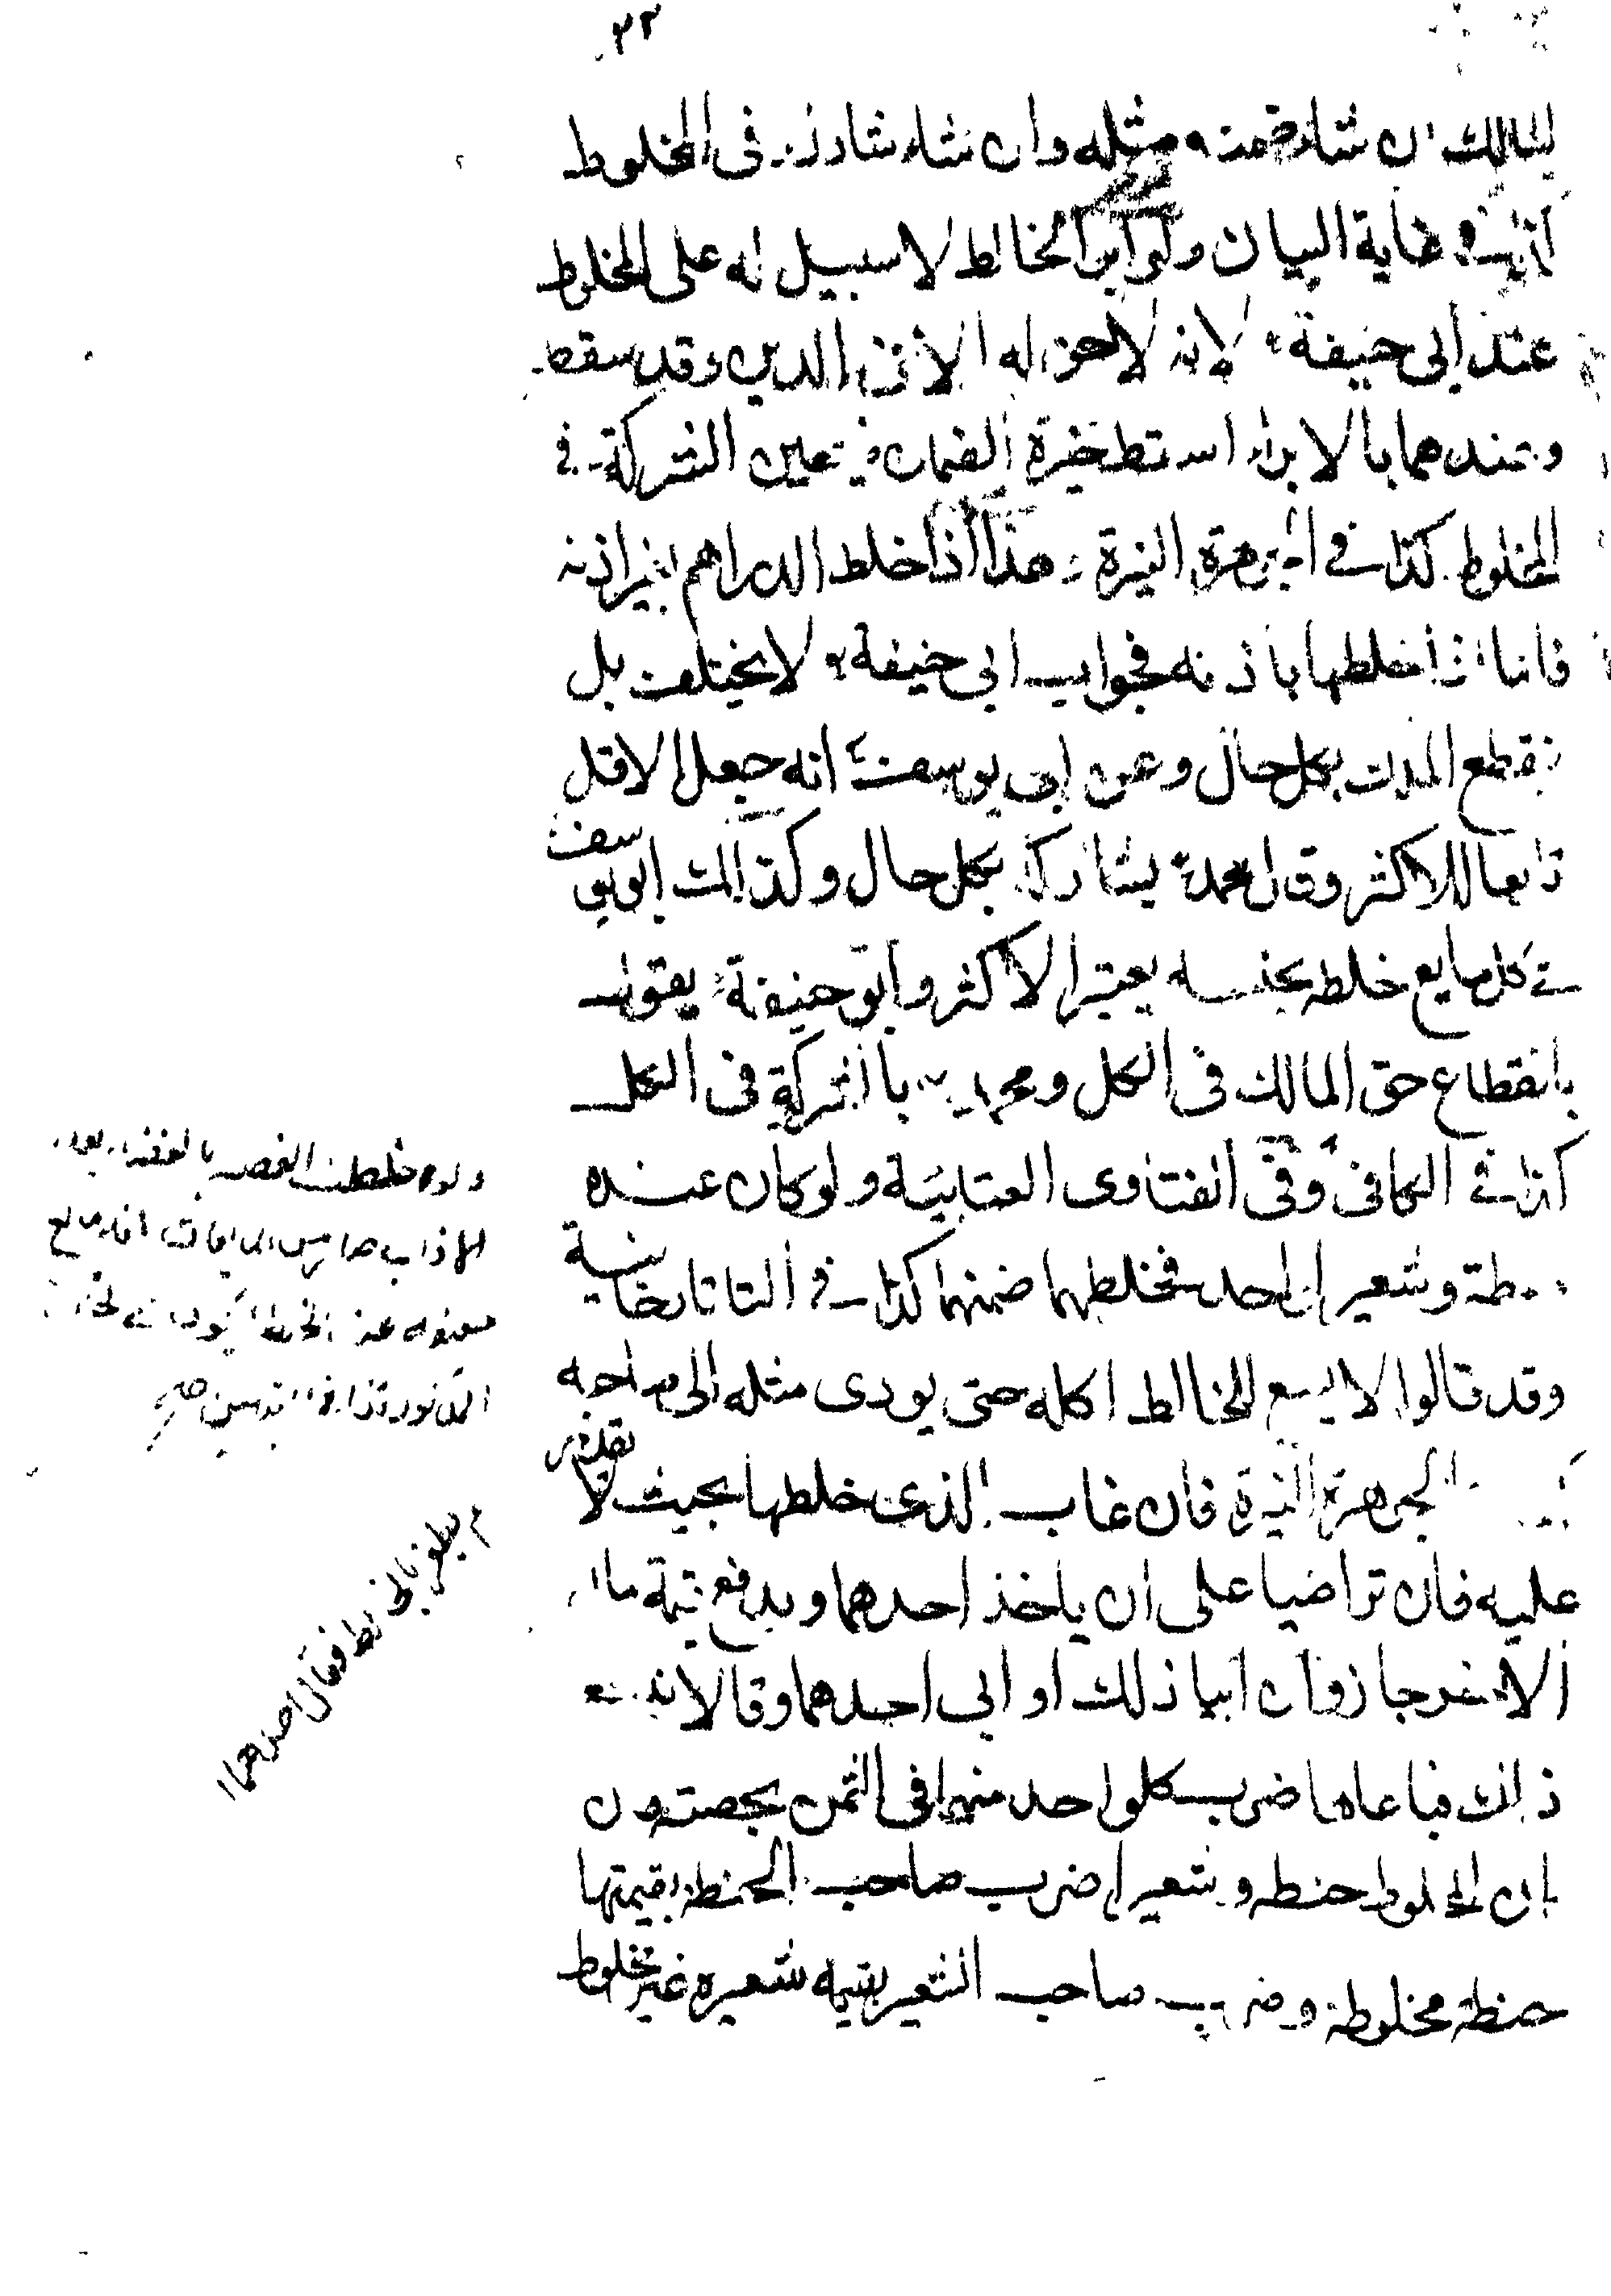 ٣٢
للمالك ان شاء ضمنه مثله وان شاء شاركه فى المخلوط
كذا فى غاية البيان ولو ابرأ الخالط لا سبيل له على المخلوط
عند ابى حنيفة لانه لا حق له الا فى الدين وقد سقط
وعندهما بالابراء اسقط خيرة الضمان فيتعين الشركة فى
المخلوط كذا فى الجوهرة النيرة هذا اذا خلط الدراهم بغير اذنه
فاما اذا خلطها باذنه فجواب ابى حنيفة لا يختلف بل
ينقطع الملك بكل حال وعن ابى يوسف انه جعل الاقل
تابعا للاكثر وقال محمد يشاركه بكل حال وكذالك ابو يوسف
فى كل مايع خلطه بجنسه يعتبر الاكثر وابو حنيفة يقول
بانقطاع حق المالك فى الكل ومحمد بالشركة فى الكل
كذا فى الكافى وفى الفتاوى العتابية ولو كان عنده
حنطة وشعير لواحد فخلطهما ضمنهما كذا فى التاتارخانية
وقد قالوا لا يسع للخالط اكله حتى يودى مثله الى صاحبه
كذا فى الجوهرة النيرة فان غاب الذى خلطها بحيث لا يقدر
عليه فان تراضيا على ان ياخذ احدهما ويدفع قيمة مال
الاخر جاز وان ابيا ذلك او ابى احدهما وقالا نبيع
ذلك فباعاها ضرب كل واحد منهما فى الثمن بحصته وان
كان المخلوط حنطه وشعيرا ضرب صاحب الحنطة بقيمتها
حنطة مخلوطة وضرب صاحب الشعير بقيمه شعيره غير مخلوط
ولو خلطت الفضه بالفضه بعد
الاذابه صار من المايعات
عند الخلط فيكون على الخلاف
المذكور كذا فى التبيين صح
فقال احدهما